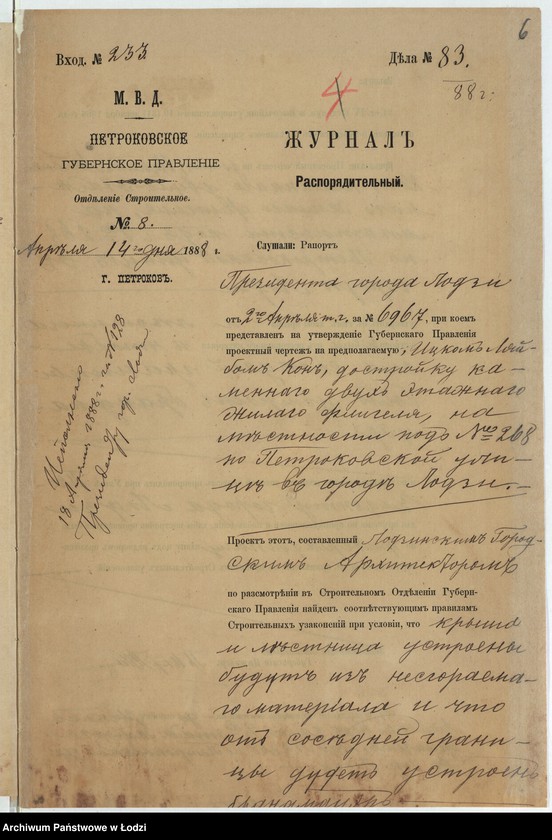 6
Вход. № 233.
Дѣла № 83.
88 г.
4
М. В. Д.
ПЕТРОКОВСКОЕ
ГУБЕРНСКОЕ ПРАВЛЕНІЕ
Отдѣленіе Строительное.
№ 8.
Апрѣля 14го дня 1888 г.
Г. ПЕТРОКОВЪ.
ЖУРНАЛЪ
Распорядительный.
Слушали: Рапортъ
Президента города Лодзи
отъ 2го Апрѣля т. г. за № 6967, при коемъ
представленъ на утвержденіе Губернскаго Правленія
проектный чертежъ на предполагаемую, Ицкомъ Ляй-
бомъ Конъ, достройку ка-
меннаго двухъ этажнаго
жилаго флигеля, на
мѣстности подъ № 268
по Петроковской ули-
цѣ въ городѣ Лодзи.
Исполнено
18 Апрѣля 1888 г. за № 128
Президенту гор. Лодзи
Проектъ этотъ, составленный Лодзинскимъ Город-
скимъ Архитекторомъ
по разсмотрѣніи въ Строительномъ Отдѣленіи Губерн-
скаго Правленія найденъ соотвѣтствующимъ правиламъ
Строительныхъ узаконеній при условіи, что крыша
и лѣстница устроены
будутъ изъ несгораема-
го матеріала и что
отъ сосѣдней грани-
цы будетъ устроенъ
брандмауеръ.
Archiwum Państwowe w Łodzi